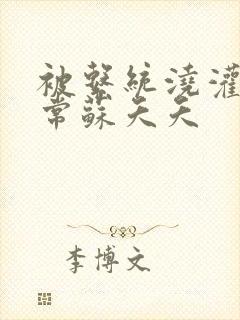 被繫統澆灌
常蘇天天
李博文